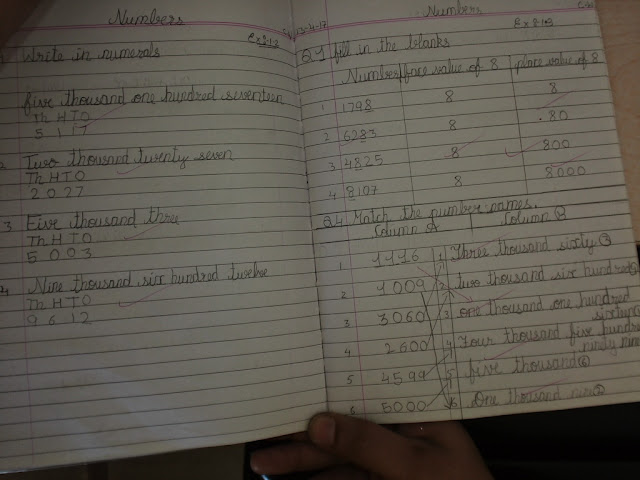 Numbers
Ex 2.1.2
Write in numerals
five thousand one hundred seventeen
Th H T O
5 1 1 7
Two thousand twenty seven
Th H T O
2 0 2 7
3 Five thousand three
Th H T O
5 0 0 3
4 Nine thousand six hundred twelve
Th H T O
9 6 1 2
Numbers
Q fill in the blanks
Number face value of 8 place value of 8
1 1798 8 8
2 6283 8 80
3 4825 8 800
4 8107 8 8000
Q.4 Match the number names.
Column A Column B
1 1116 1 Three thousand sixty 3
2 1009 2 two thousand six hundred
3 3060 3 one thousand one hundred
4 2600 4 Four thousand five hundred
ninety nine
5 4599 5 five thousand 6
6 5000 6 One thousand